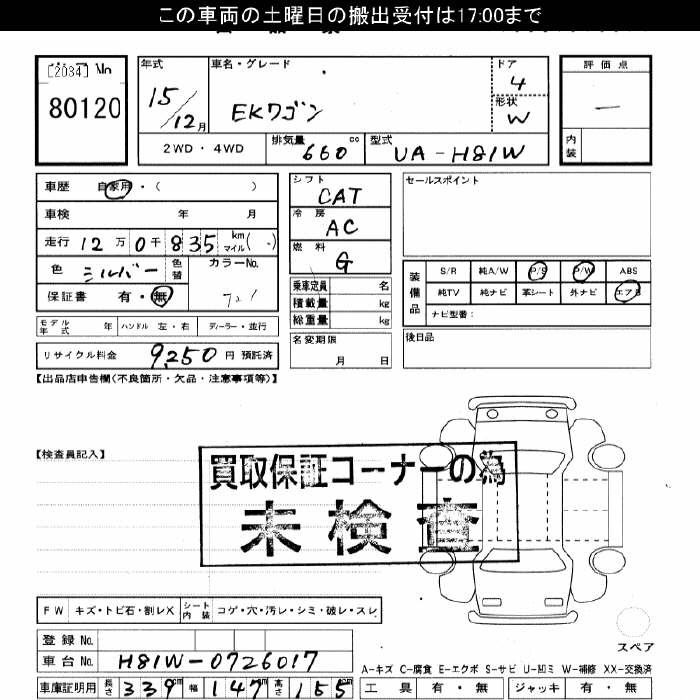 この車両の土曜日の搬出受付は17:00まで
[2034] No
80120
年式 15/12月
車名・グレード
EKワゴン
ドア 4
形状 W
評価点
―
内装
2WD・4WD
排気量 660 cc
型式 UA-H81W
車歴 自家用・( )
車検 年 月
走行 12万0千835 km マイル( )
色 シルバー 色替
カラーNo.
保証書 有・無
シフト CAT
冷房 AC
燃料 G
乗車定員 名
積載量 kg
総重量 kg
セールスポイント
装備品
S/R 純A/W P/S P/W ABS
純TV 純ナビ 革シート 外ナビ エアB
ナビ型番:
モデル年式 年 ハンドル 左・右 ディーラー・並行
名変期限
月 日
後日品
リサイクル料金 9,250 円 預託済
【出品店申告欄(不良箇所・欠品・注意事項等)】
【検査員記入】
買取保証コーナーの為
未検査
FW キズ・トビ石・割レX シート内装 コゲ・穴・汚レ・シミ・破レ・スレ
スペア
登録No.
車台No. H81W-0726017
A-キズ C-腐食 E-エクボ S-サビ U-凹ミ W-補修 XX-交換済
車庫証明用 長さ 339 cm 幅 147 cm 高さ 155 cm
工具 有・無 ジャッキ 有・無